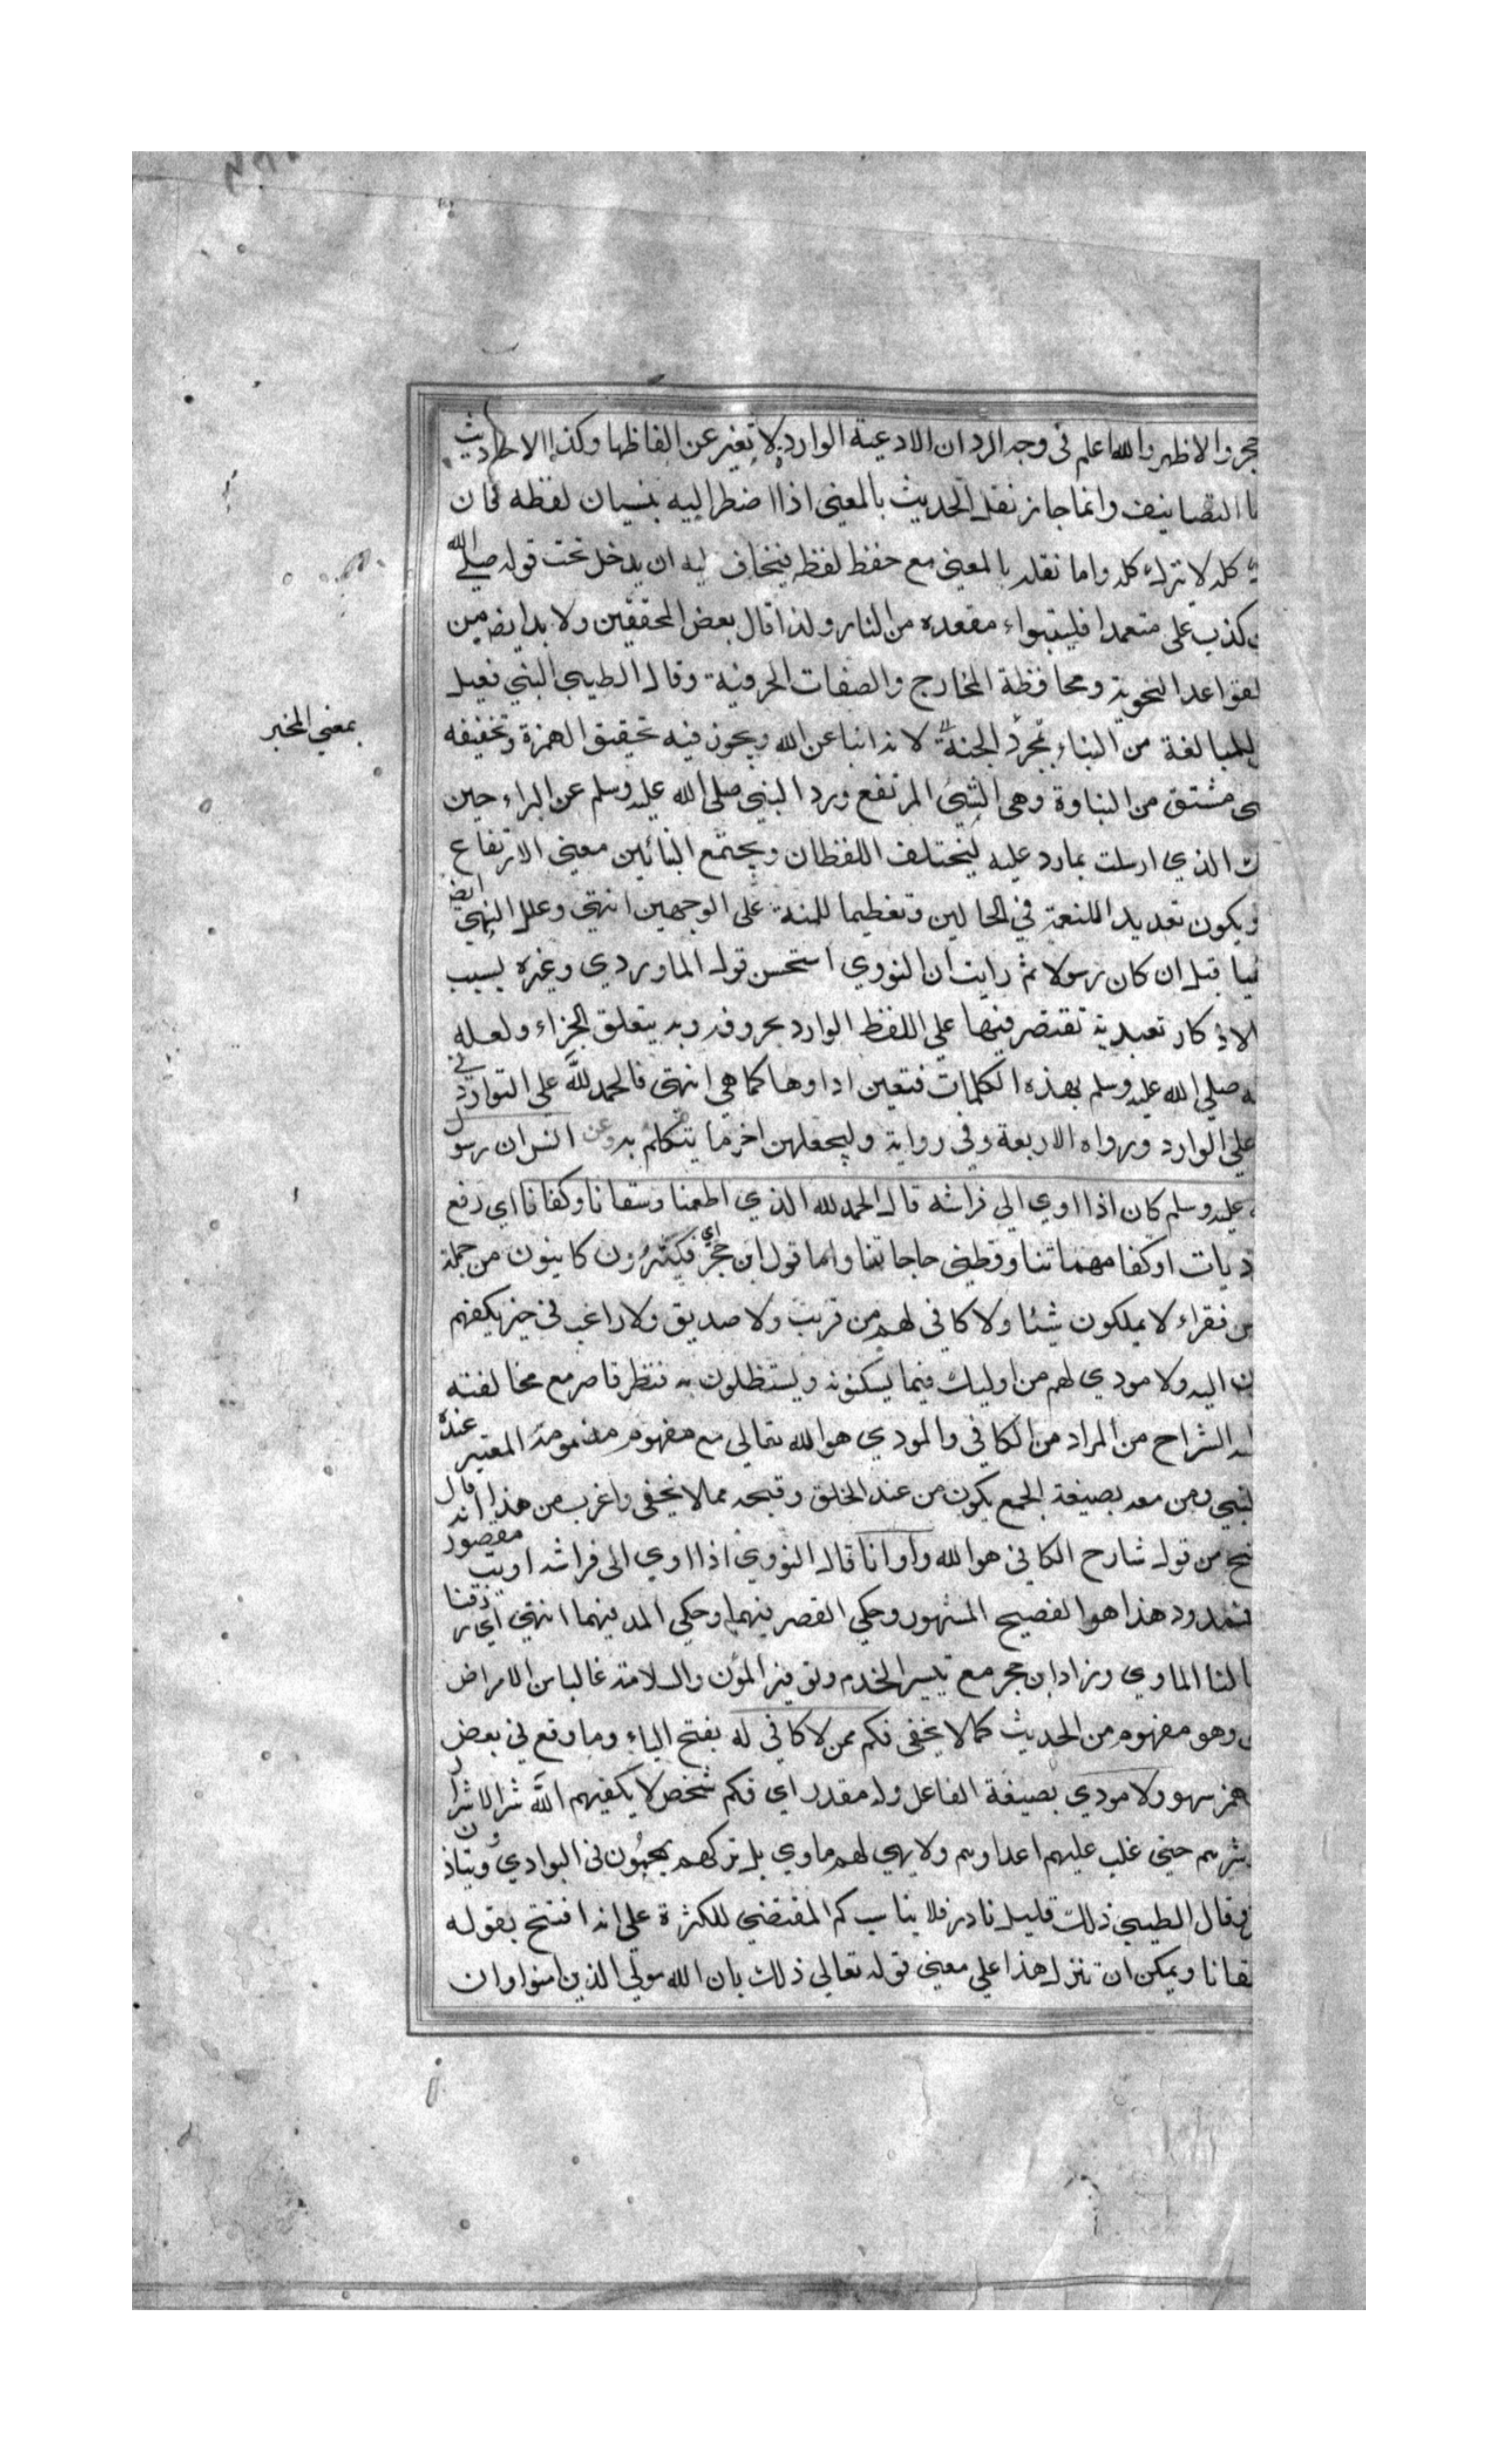 حجر والاظهر والله اعلم في وجه الرد ان الادعية الواردة لا تغير عن الفاظها وكذا الاحاديث
التصانيف وانما جاز نقل الحديث بالمعني اذا اضطر اليه بنسيان لفظه فان
كله لا يترك كله واما نقله بالمعني مع حفظ لفظه فيخاف ليه ان يدخل تحت قوله صلي الله
كذب علي متعمدا فليتبواء مقعده من النار ولذا قال بعض المحققين ولا بد ايضا من
لقواعد النحوية ومحافظة المخارج والصفات الحرفية وقال الطيبي النبي فعيل
للمبالغة من النباء لانه انبا عن الله ويجوز فيه تحقيق الهمزة وتخفيفه
بمعني المخبر
مشتق من النباوة وهي الشئ المرتفع ورد النبي صلي الله عليه وسلم عن البراء حين
الذي ارسلت بما رد عليه ليختلف اللفظان ويجتمع البنائين معني الارتفاع
ويكون تعديدا للنعمة في الحالين وتعظيما للمنة علي الوجهين انتهي وعلل النهي ايضا
قبل ان كان رسولا ثم رايت ان النووي استحسن قول الماوردي وغيره بسبب
الاذكار تعبدية تقتصر فيها علي اللفظ الوارد بحروفه وبه يتعلق الجزاء ولعله
صلي الله عليه وسلم بهذه الكلمات فتعين اداوها كما هي انتهي فالحمد لله علي التوارد في
علي الوارد ورواه الاربعة وفي رواية وليجعلهن اخر ما يتكلم به وعن انس ان رسول
عليه وسلم كان اذا اوي الي فراشه قال الحمد لله الذي اطعمنا وسقانا وكفانا اي دفع
ذيات او كفا مهماتنا وقضي حاجاتنا واما قول ابن حجر اي فكثيرون كاينون من جملة
فقراء لا يملكون شئا ولا كافي لهم من قريب ولا صديق ولا راغب في خير يكفهم
اليه ولا مودي لهم من اوليك فيما يسكنونه ويستظلون به فنظر قاصر مع مخالفته
الشراح من المراد من الكافي والمودي هو الله تعالي مع مفهوم مذمومة المعتبر عنده
ومن معه بصيغة الجمع يكون من عند الخلق وقبحه مما لا يخفي واغرب من هذا انه قال
من قول شارح الكافي هو الله واوانا قال النووي اذا اوي الي فراشه اويت مقصور
فممدود هذا هو الفصيح المشهور وحكي القصر فيهما وحكي المد فيهما انتهي اي رزقنا
لنا الماوي وزاد ابن حجر مع تيسير الخدم وتوفير المؤن والسلامة غالبا من الامراض
وهو مفهوم من الحديث كما لا يخفي فكم ممن لا كافي له بفتح الياء وما وقع في بعض
همز سهو ولا مودي بصيغة الفاعل وله مقدر اي فكم شخص لا يكفيهم الله شر الاشرار
شرهم حتي غلب عليهم اعداوهم ولا يهي لهم ماوي بل تركهم يجبون في البوادي ويتاذون
وقال الطيبي ذلك قليل نادر فلا يناسب كم المقتضي للكثرة علي انه افتتح بقوله
ويمكن ان تنزل هذا علي معني قوله تعالي ذلك بان الله مولي الذين امنوا وان